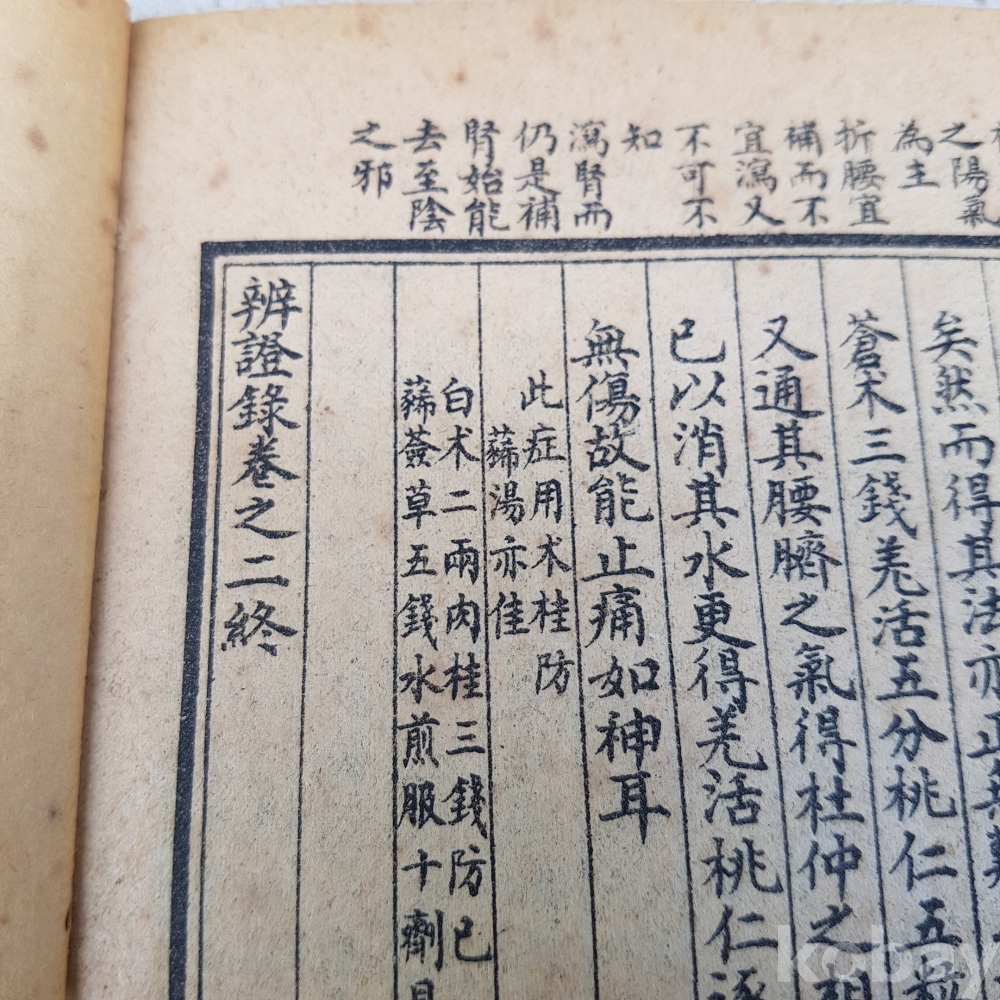 之陽氣
為主
折腰宜
補而不
宜瀉又
不可不
知
瀉腎而
仍是補
腎始能
去至陰
之邪
矣然而得其法亦
蒼术三錢羗活五分桃仁五粒
又通其腰臍之氣得杜仲之
已以消其水更得羗活桃仁逐
無傷故能止痛如神耳
此症用术桂防
豨湯亦佳
白术二兩肉桂三錢防已
豨薟草五錢水煎服十劑
辨證錄卷之二終
kobay